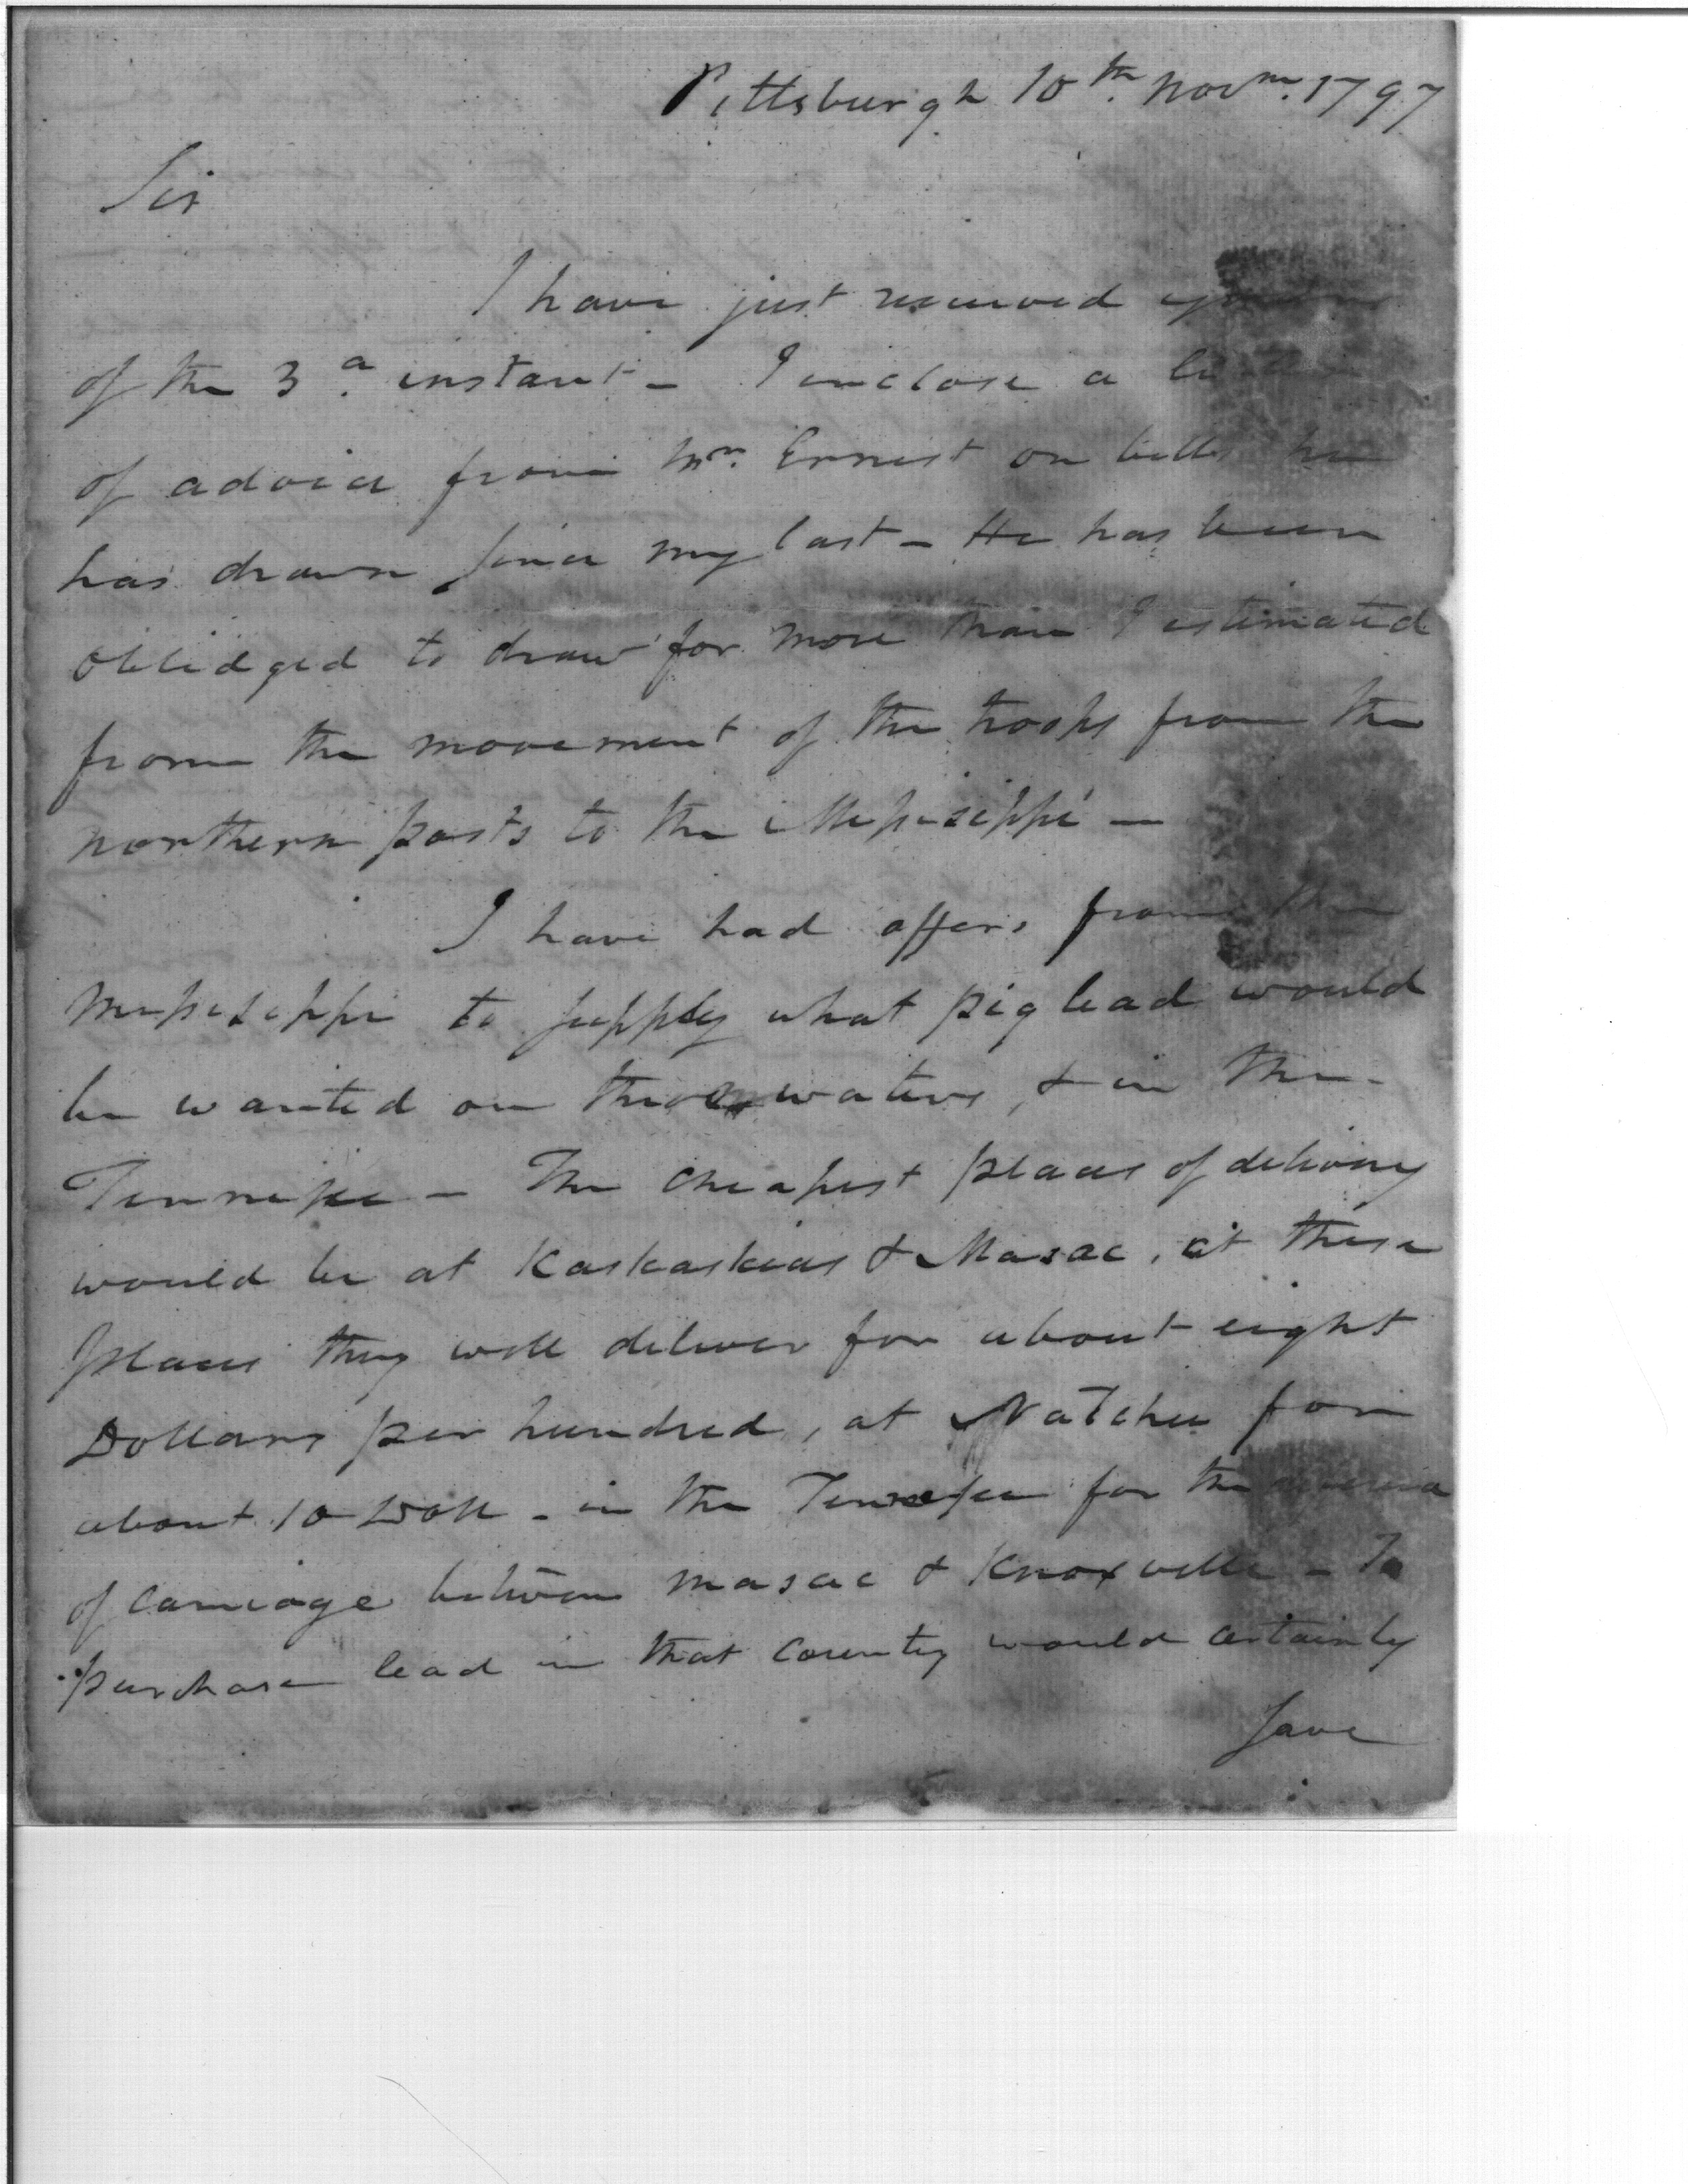 Pittsburgh 10th. Novm. 1797
Sir
I have just received
of the 3d. instant - I inclose a
of advice from Mr. Ernest on bills he
has drawn since my last - He has been
oblidged to draw for more than I estimated
from the movement of the troops from the
northern posts to the Missisippi -
I have had offers from the
Missisippi to supply what pig lead would
be wanted on those waters, & in the
Tennessee - The cheapest places of delivery
would be at Kaskaskias & Masac, at these
places they will deliver for about eight
Dollars per hundred, at Natchez for
about 10 Doll - in the Tennessee for the
of carriage between Masac & Knoxville - To
purchase lead in that Country would certainly
save